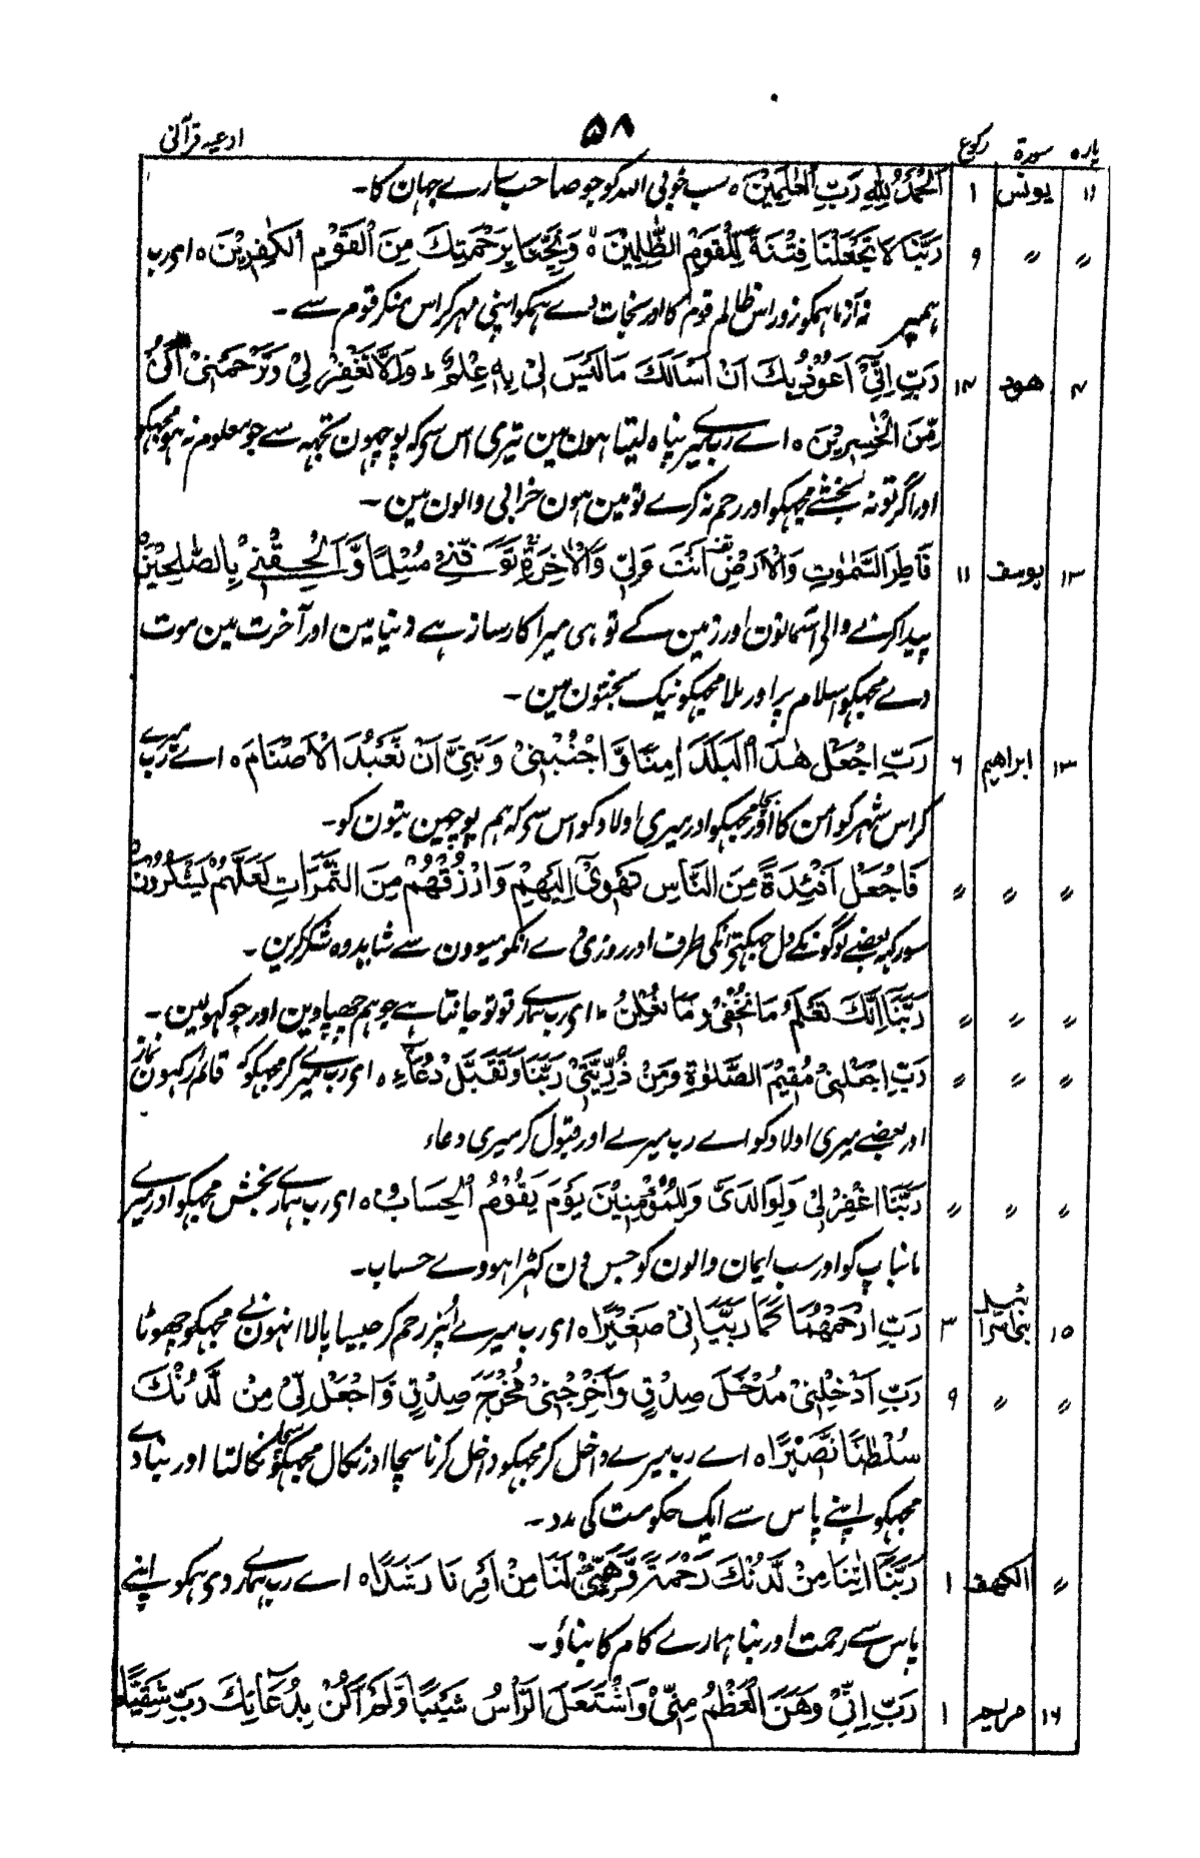 پارہ سورۃ رکوع ۵۸ ادعیہ قرآنی
۱۱ یونس ۱ اَلْحَمْدُ لِلّٰہِ رَبِّ الْعٰلَمِیْنَ ہ سب خوبی اللہ کو جو صاحب سارے جہان کا۔
〃 〃 ۹ رَبَّنَا لَا تَجْعَلْنَا فِتْنَۃً لِّلْقَوْمِ الظّٰلِمِیْنَ ہ وَنَجِّنَا بِرَحْمَتِكَ مِنَ الْقَوْمِ الْكٰفِرِیْنَ ہ ای رب
ہمپر نہ آزما ہمکو زور اس ظالم قوم کا اور نجات دے ہمکو اپنی مہر کر اس منکر قوم سے۔
۲ ھود ۱۴ رَبِّ اِنِّیْ اَعُوْذُ بِكَ اَنْ اَسْاَلَكَ مَا لَیْسَ لِیْ بِہٖ عِلْمٌ ط وَاِلَّا تَغْفِرْ لِیْ وَتَرْحَمْنِیْ اَكُنْ
مِّنَ الْخٰسِرِیْنَ ہ اے رب میرے پناہ لیتا ہون مین تیری اس سی کہ پوچھون تجہہ سے جو معلوم نہ ہو مجہکو
اور اگر تو نہ بخشے مجہکو اور رحم نہ کرے تو مین ہون خرابی والون مین۔
۱۳ یوسف ۱۱ فَاطِرَ السَّمٰوٰتِ وَالْاَرْضِ اَنْتَ وَلِیّٖ وَالْاٰخِرَۃِ تَوَفَّنِیْ مُسْلِمًا وَّاَلْحِقْنِیْ بِالصّٰلِحِیْنَ
پیدا کرنے والی آسمانون اور زمین کے تو ہی میرا کارساز ہے دنیا مین اور آخرت مین موت
دے مجہکو اسلام پر اور ملا مجہکو نیک بختون مین۔
۱۳ ابراھیم ۶ رَبِّ اجْعَلْ ھٰذَا الْبَلَدَ اٰمِنًا وَّاجْنُبْنِیْ وَبَنِیَّ اَنْ نَّعْبُدَ الْاَصْنَامَ ہ اے رب میرے
کر اس شہر کو امن کا اور بچا مجہکو اور میری اولاد کو اس سی کہ ہم پوجین بتون کو۔
〃 〃 〃 فَاجْعَلْ اَفْئِدَۃً مِّنَ النَّاسِ تَھْوِیْ اِلَیْھِمْ وَارْزُقْھُمْ مِنَ الثَّمَرَاتِ لَعَلَّھُمْ یَشْكُرُوْنَ
سو رکہہ بعضے لوگونکے دل جہکتے انکی طرف اور روزی دے انکو میوون سے شاید وہ شکر کرین۔
〃 〃 〃 رَبَّنَا اِنَّكَ تَعْلَمُ مَا نُخْفِیْ وَمَا نُعْلِنُ ط ای رب ہمارے تو تو جانتا ہے جو ہم چھپاوین اور جو کہولین۔
〃 〃 〃 رَبِّ اجْعَلْنِیْ مُقِیْمَ الصَّلٰوۃِ وَمِنْ ذُرِّیَّتِیْ رَبَّنَا وَتَقَبَّلْ دُعَآءِ ہ ای رب میرے کر مجہکو کہ قائم رکہون نماز
اور بعضے میری اولاد کو اے رب میرے اور قبول کر میری دعاء
〃 〃 〃 رَبَّنَا اغْفِرْ لِیْ وَلِوَالِدَیَّ وَلِلْمُؤْمِنِیْنَ یَوْمَ یَقُوْمُ الْحِسَابُ ہ ای رب ہمارے بخش مجہکو اور میرے
مانباپ کو اور سب ایمان والون کو جس دن کہڑا ہووے حساب۔
۱۵ بنی اسرائیل ۳ رَبِّ ارْحَمْھُمَا كَمَا رَبَّیَانِیْ صَغِیْرًا ہ ای رب میرے اُنپر رحم کر جیسا پالا انہون نے مجہکو چھوٹا
〃 〃 ۹ رَبِّ اَدْخِلْنِیْ مُدْخَلَ صِدْقٍ وَاَخْرِجْنِیْ مُخْرَجَ صِدْقٍ وَاجْعَلْ لِّیْ مِنْ لَّدُنْكَ
سُلْطٰنًا نَّصِیْرًا ہ اے رب میرے داخل کر مجہکو داخل کرنا سچا اور نکال مجہکو سچا نکالنا اور بنا دے
مجہکو اپنے پاس سے ایک حکومت کی مدد۔
〃 الکھف ۱ رَبَّنَا اٰتِنَا مِنْ لَّدُنْكَ رَحْمَۃً وَّھَیِّئْ لَنَا مِنْ اَمْرِنَا رَشَدًا ہ اے رب ہمارے دی ہمکو اپنے
پاس سے رحمت اور بنا ہمارے کام کا بناؤ۔
۱۶ مریم ۱ رَبِّ اِنِّیْ وَھَنَ الْعَظْمُ مِنِّیْ وَاشْتَعَلَ الرَّاْسُ شَیْبًا وَّلَمْ اَكُنْ بِدُعَآئِكَ رَبِّ شَقِیًّا